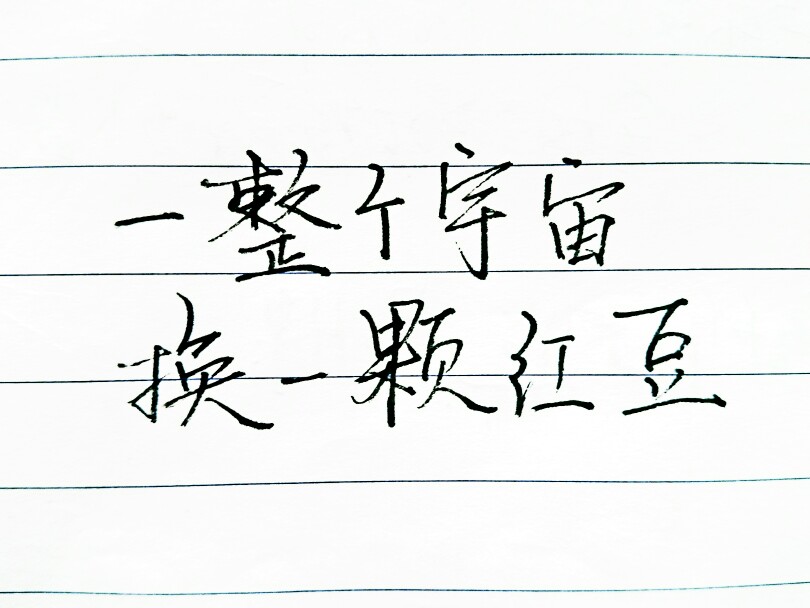 一整个宇宙
换一颗红豆